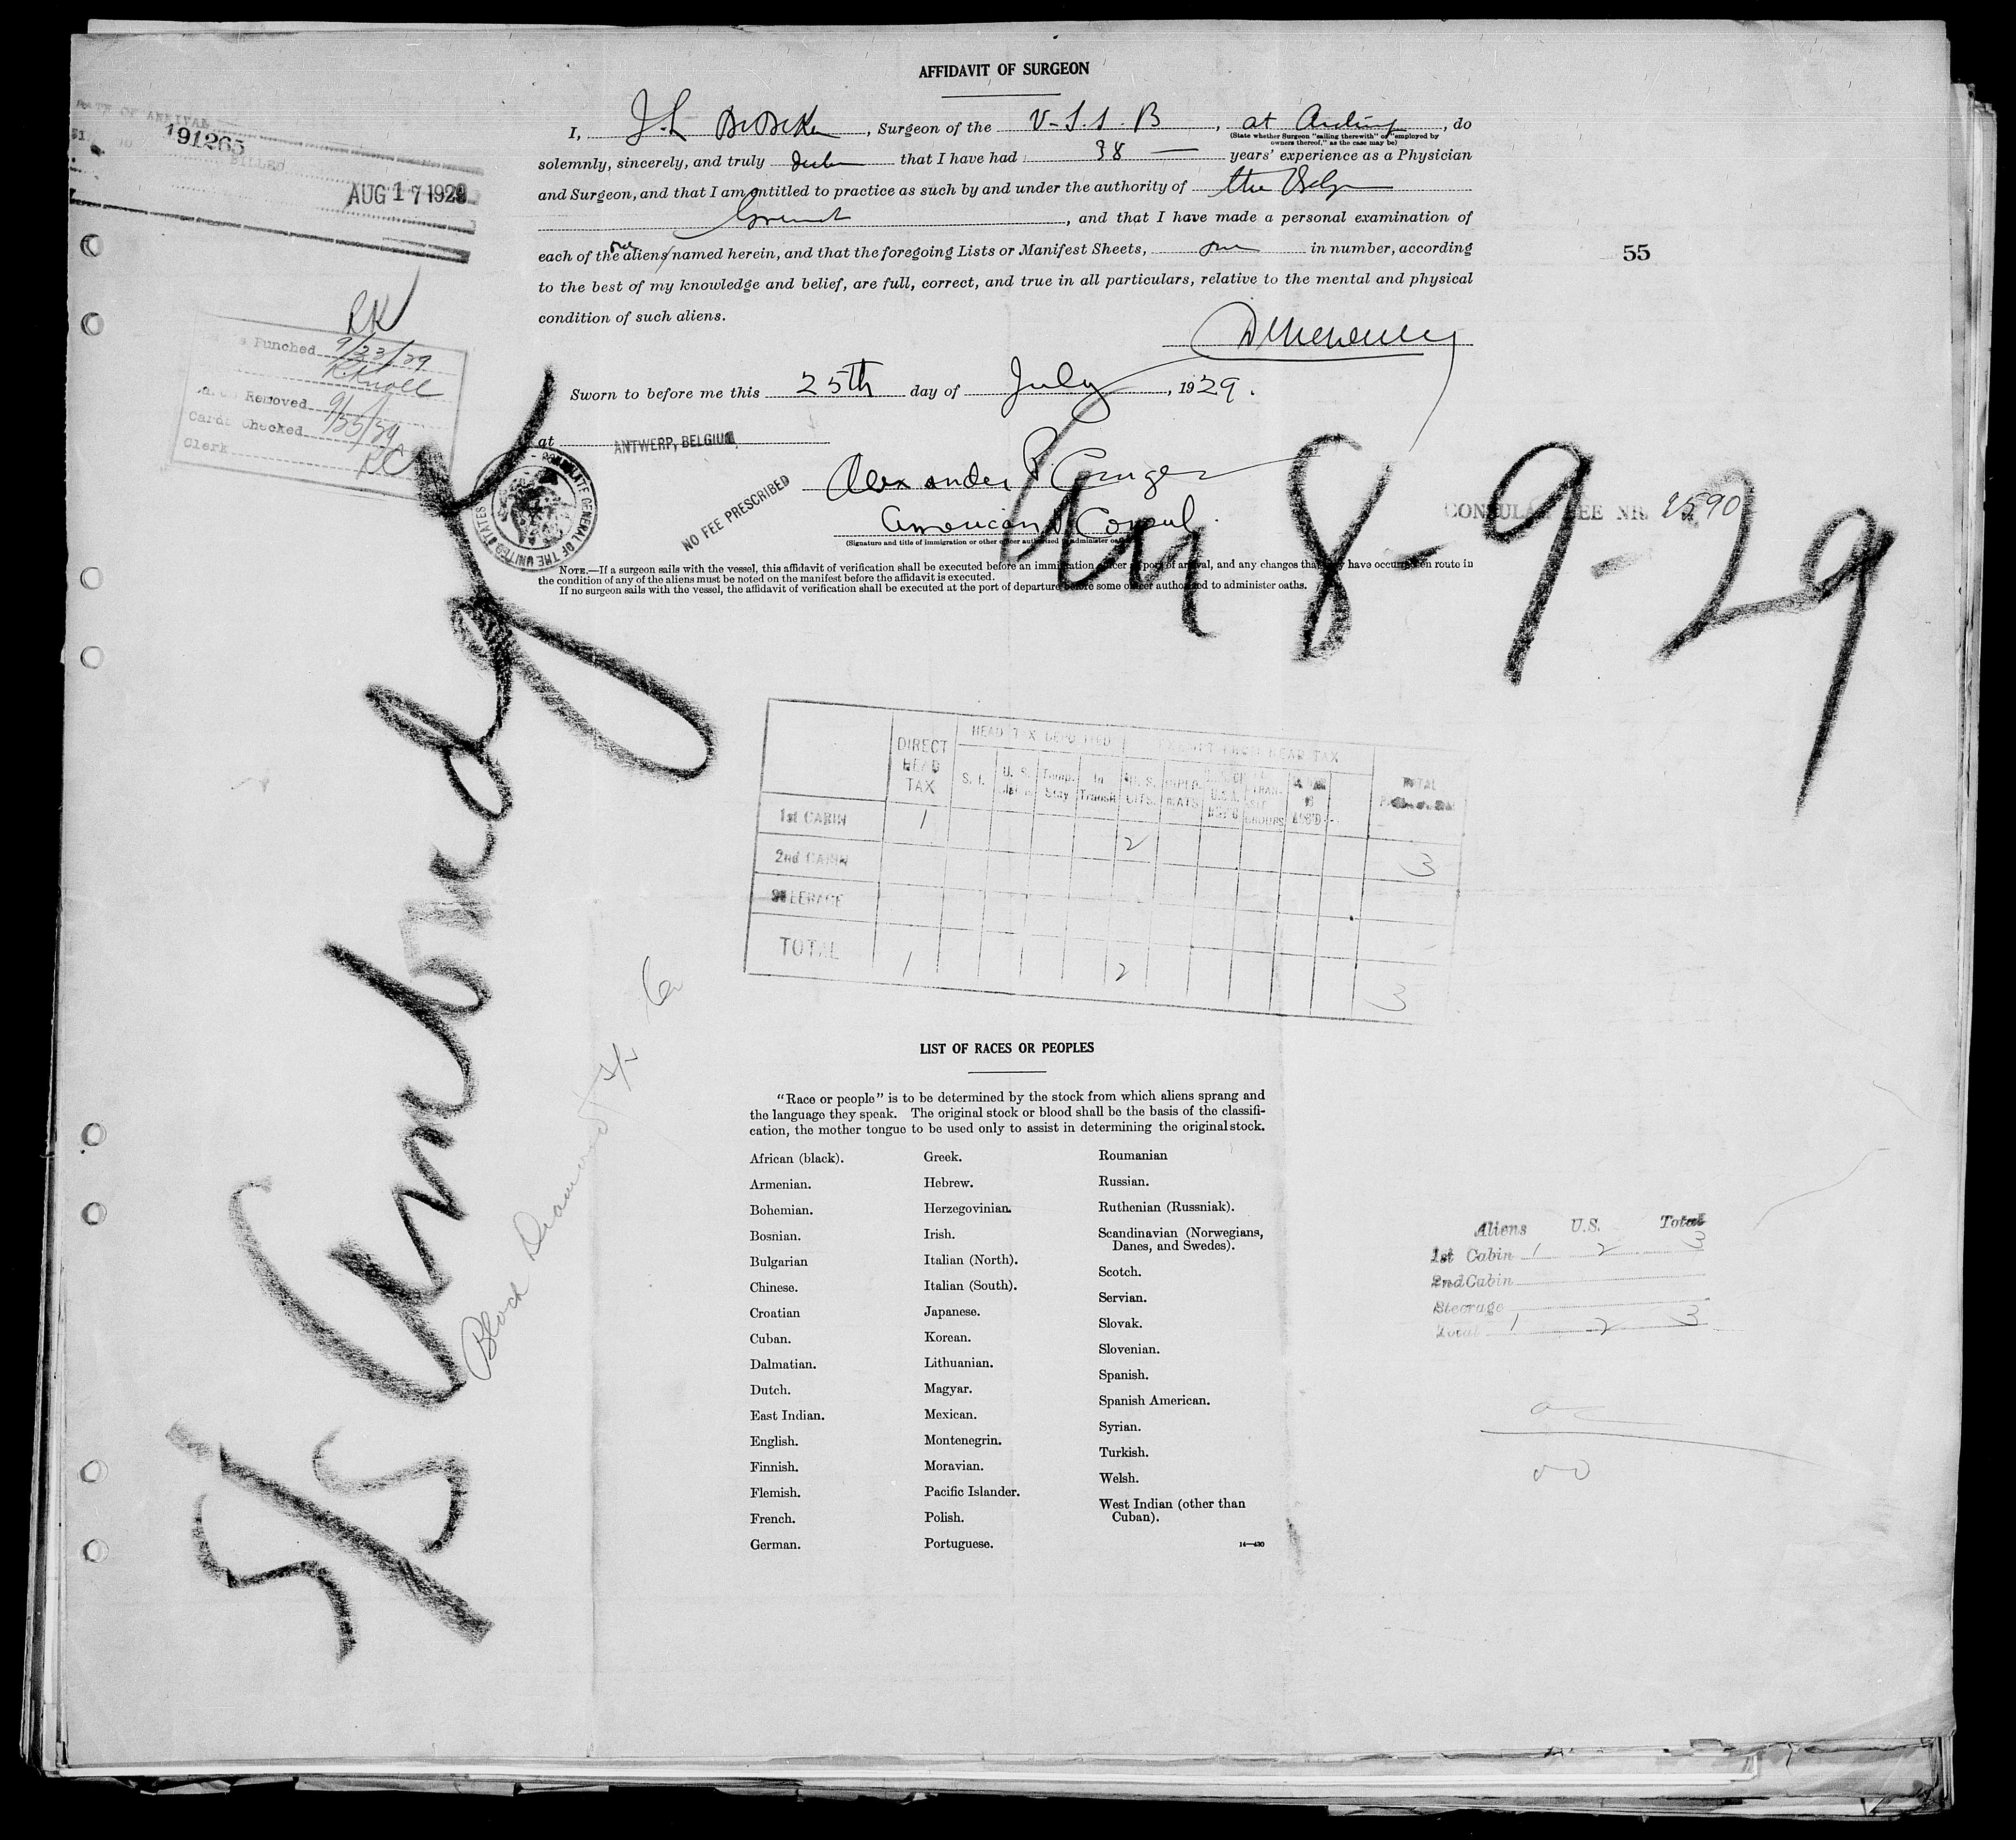 AFFIDAVIT OF SURGEON
I, J.L. , Surgeon of the , at , do
(State whether Surgeon "sailing therewith" or "employed by owners thereof," as the case may be)
solemnly, sincerely, and truly that I have had 38 — years' experience as a Physician
and Surgeon, and that I am entitled to practice as such by and under the authority of the
, and that I have made a personal examination of
each of the one aliens named herein, and that the foregoing Lists or Manifest Sheets, one in number, according
to the best of my knowledge and belief, are full, correct, and true in all particulars, relative to the mental and physical
condition of such aliens.
Sworn to before me this 25th day of July, 1929.
at ANTWERP, BELGIUM
NO FEE PRESCRIBED
Alexander P. Cruger
American Consul.
(Signature and title of immigration or other officer authorized to administer oaths)
CONSULAR FEE NR. 1590
NOTE.—If a surgeon sails with the vessel, this affidavit of verification shall be executed before an immigration officer at port of arrival, and any changes that may have occurred en route in
the condition of any of the aliens must be noted on the manifest before the affidavit is executed.
If no surgeon sails with the vessel, the affidavit of verification shall be executed at the port of departure before some officer authorized to administer oaths.
DATE OF ARRIVAL
191265
BILLED
AUG 17 1929
RK
Punched 9/23/29
R. Knoll
Removed 9/25/29
Cards Checked
Clerk
55
8-9-29
S/S Cambridge
Block Diamond
DIRECT HEAD TAX
HEAD TAX DEPOSITED
EXEMPT FROM HEAD TAX
TOTAL
S. I.
Temp. Stay
In Transit
U. S. CITS.
1st CABIN 1 2 3
2nd CABIN
STEERAGE
TOTAL 1 2 3
LIST OF RACES OR PEOPLES
"Race or people" is to be determined by the stock from which aliens sprang and
the language they speak. The original stock or blood shall be the basis of the classifi-
cation, the mother tongue to be used only to assist in determining the original stock.
African (black).
Armenian.
Bohemian.
Bosnian.
Bulgarian
Chinese.
Croatian
Cuban.
Dalmatian.
Dutch.
East Indian.
English.
Finnish.
Flemish.
French.
German.
Greek.
Hebrew.
Herzegovinian.
Irish.
Italian (North).
Italian (South).
Japanese.
Korean.
Lithuanian.
Magyar.
Mexican.
Montenegrin.
Moravian.
Pacific Islander.
Polish.
Portuguese.
Roumanian
Russian.
Ruthenian (Russniak).
Scandinavian (Norwegians,
Danes, and Swedes).
Scotch.
Servian.
Slovak.
Slovenian.
Spanish.
Spanish American.
Syrian.
Turkish.
Welsh.
West Indian (other than
Cuban).
14—430
Aliens U.S. Total
1st Cabin 1 2 3
2nd Cabin
Steerage
Total 1 2 3